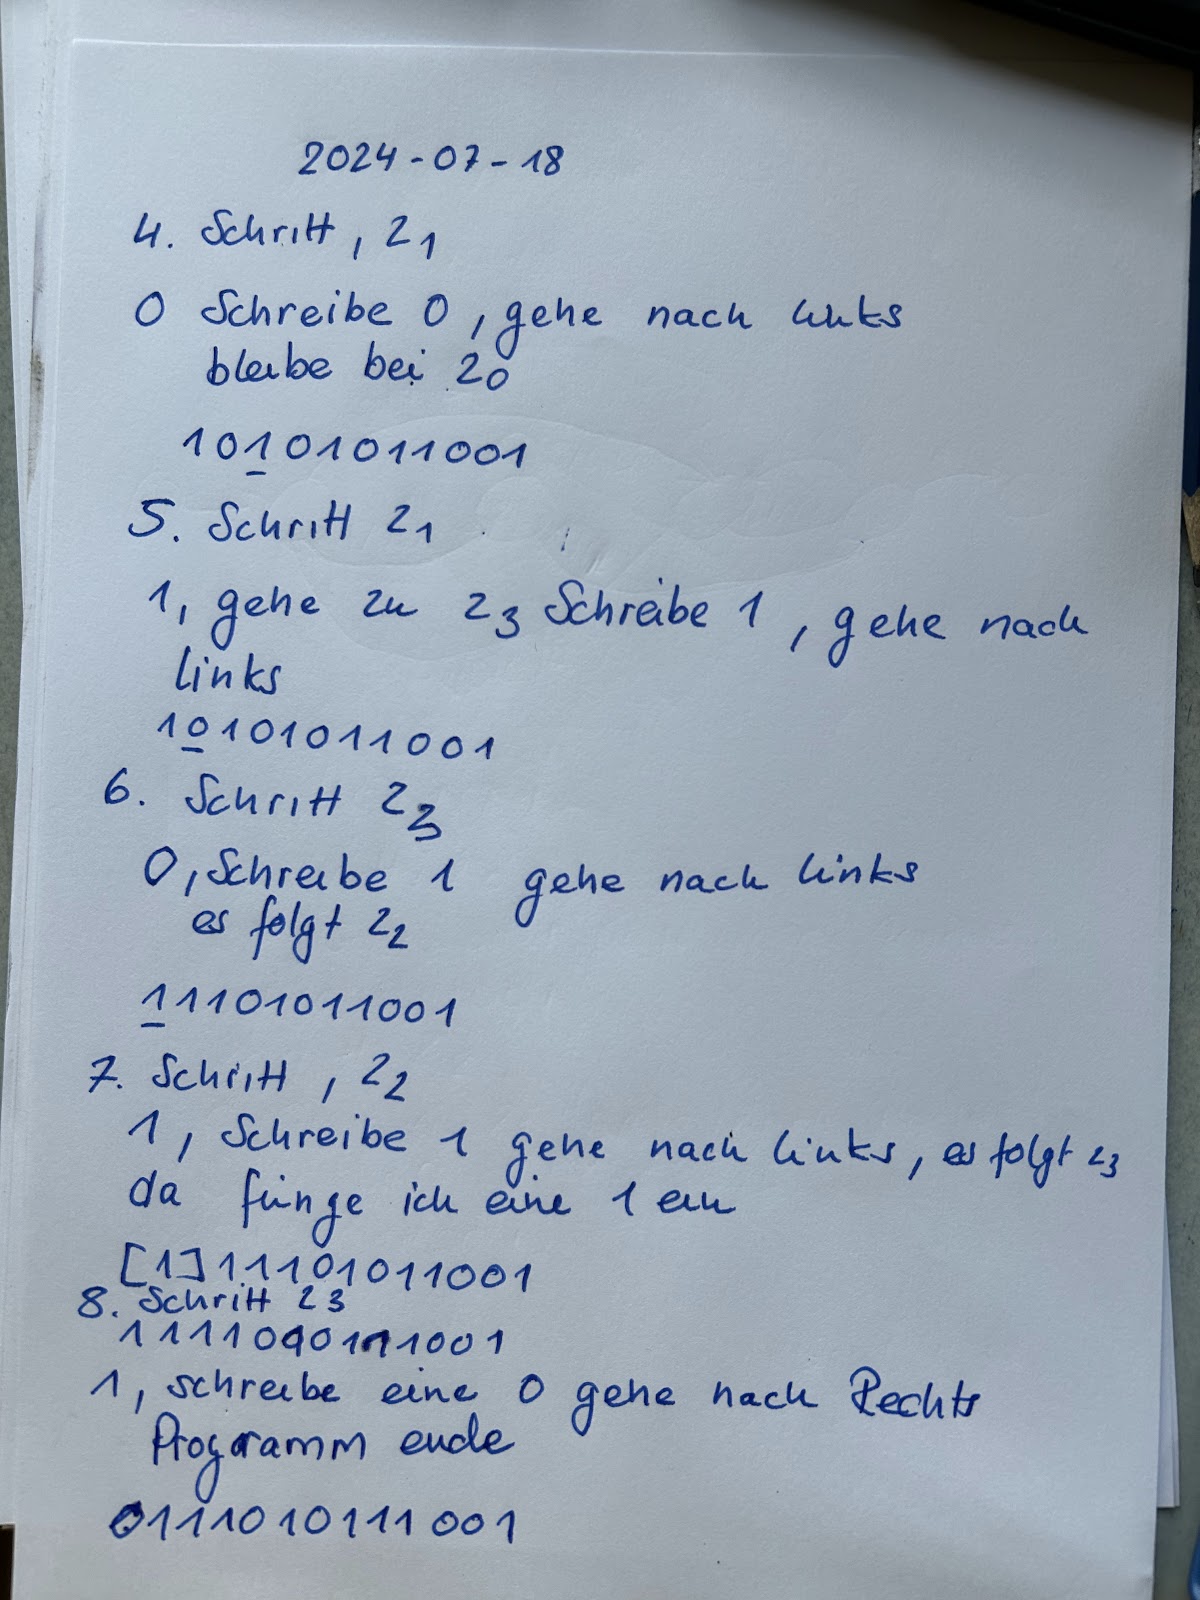 2024-07-18
4. Schritt, z1
0 Schreibe 0, gehe nach links
bleibe bei z0
10101011001
5. Schritt z1
1, gehe zu z3 Schreibe 1, gehe nach
links
10101011001
6. Schritt z3
0, Schreibe 1 gehe nach links
es folgt z2
11101011001
7. Schritt, z2
1, Schreibe 1 gehe nach links, es folgt z3
da fünge ich eine 1 ein
[1]11101011001
8. Schritt z3
1, schreibe eine 0 gehe nach Rechts
Programm ende
0111010111001